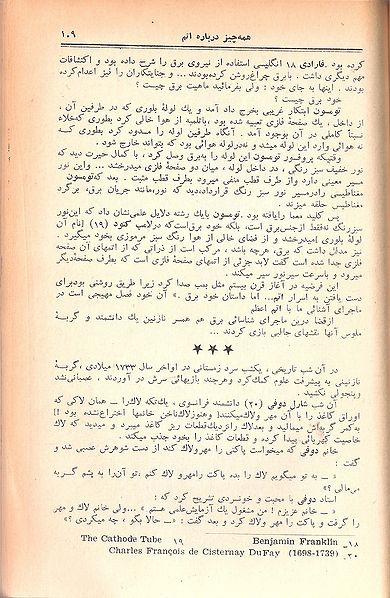 همه‌چیز درباره اتم
۱۰۹
کرده بود . فارادی ۱۸ انگلیسی استفاده از نیروی برق را شرح داده بود و اکتشافات
مهم دیگری داشت . بابرق چراغ‌روشن کرده‌بودند ... و جنایتکاران را نیز اعدام‌کرده
بودند . اینها به جای خود : ولی بفرمائید ماهیت برق چیست ؟
خود برق چیست ؟
تومسون ابتکار غریبی بخرج داد آمد و یک لولهٔ بلوری که در طرفین آن ،
از داخل ، یک صفحهٔ فلزی تعبیه شده بود ، باتلمبه از هوا خالی کرد بطوری که‌خلاء
نسبتاً کاملی در آن بوجود آمد . آنگاه طرفین لوله را مسدود کرد بطوری که
نه هوائی وارد این لوله میشد و نه‌درلوله هوائی بود که بتواند خارج شود .
وقتیکه پروفسور تومسون این لوله را به‌برق وصل کرد ، با کمال حیرت دید که
نور خفیف سبز رنگی ، در داخل لوله ، میان دو صفحهٔ فلزی میدرخشد ... واین نور
مسیر معینی دارد واز طرف قطب منفی میرود بطرف قطب مثبت . بعد که‌تومسون
مغناطیسی رادرمسیر نور سبز رنگ قرارداد،دید که نور،مانند جریان برق، برگرد
مغناطیس حلقه میزند .
پس کلید معما رایافته بود . تومسون بایک رشته دلایل علمی‌نشان داد که این‌نور
سبزرنگ نه‌فقط ازجنس‌برق است، بلکه خود برق‌است‌که درلامپ کتود (۱۹) [نام آن
لولهٔ بلوری ]میدرخشد و از فضای خالی از هوا رنگ سبز مرموزی بخود میگیرد .
نیز مدلل داشت که برق، هرچه باشد ، مرکب است از ذراتی که از اتمهای آن صفحه
فلزی جدا شده است گفت لابد جزئی از اتمهای صفحهٔ فلزی است که بطرف صفحهٔدیگر
میرود و باسرعت سیرنور سیر میکند .
این فرضیه در آغاز قرن بیستم مثل بمب صدا کرد زیرا طریق روشنی بودبرای
دست یافتن به اسرار اتم... اما داستان خود برق .» آن خود فصل مهیجی است در
ماجرای آشنائی ما با اتم اعظم
ازقضا درین ماجرای شناسائی برق هم همسر نازنین یک دانشمند و گربهٔ
ملوس آنها نقشهای جالبی بازی کردند ...
★★★
در آن شب تاریخی ، یکشب سرد زمستانی در اواخر سال ۱۷۳۳ میلادی ،گربهٔ
نازنینی به پیشرفت علوم کمک‌کرد وهرچند بازیهائی سرش در آوردند ، عصبانی‌نشد
وپنجولی نکشید .
آن شب شارل دوفی (۲۰) دانشمند فرانسوی ، یک‌تکه لاک‌را ــ همان لاکی که
اوراق کاغذ را با آن مهر ولاک‌میکنند( وهنوزلاک‌ناخن خانمها اختراع‌نشده بود !)
به‌کمر گربه‌اش میمالید و بعدلاک رانزدیک‌قطعات ریز کاغذ میبرد و میدید که لاک
خاصیت کهربائی پیدا کرده و قطعات کاغذ را بخود جذب میکند .
خانم دوفی که میخواست پاکتی را مهرولاک کند از دست شوهرش عصبی شد و
گفت :
« ــ به تو میگویم لاک را بده پاکت رامهرو لاک کنم ،تو آن‌را به پشم گربه
می‌مالی ؟»
استاد دوفی با محبت و خونسردی تشریح کرد که :
« ــ خانم عزیزم ! من مشغول یک آزمایش‌علمی هستم » ...ولی خانم لاک و مهر
را گرفت و پاکت را مهر ولاک کرد و بعد گفت : «ــ حالا بگو ، چه میکردی ؟»
۱۸ــ Benjamin Franklin ۱۹ The Cathode Tube
۲۰ــ Charles François de Cisternay DuFay (1698-1739)